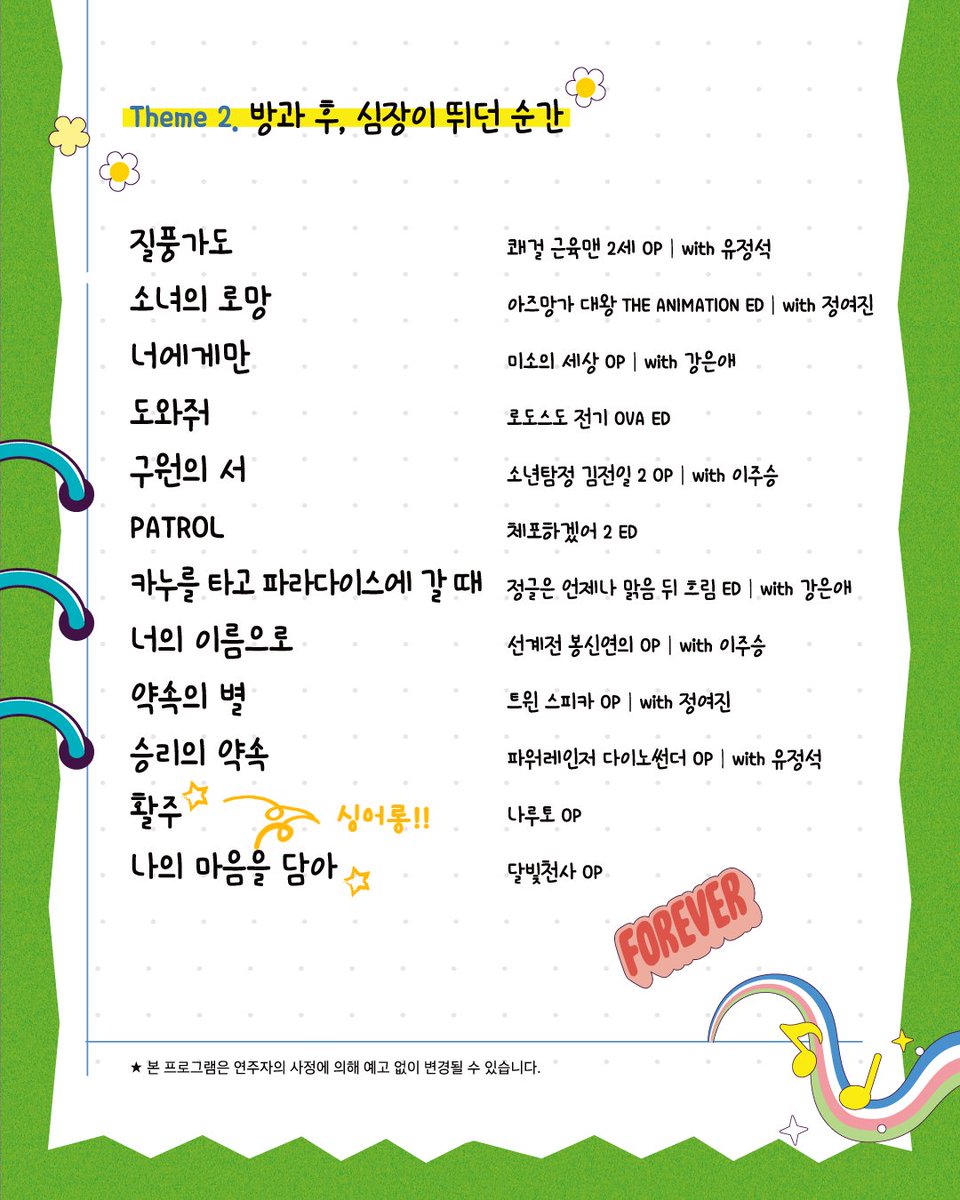 Theme 2. 방과 후, 심장이 뛰던 순간
질풍가도 쾌걸 근육맨 2세 OP | with 유정석
소녀의 로망 아즈망가 대왕 THE ANIMATION ED | with 정여진
너에게만 미소의 세상 OP | with 강은애
도와줘 로도스도 전기 OVA ED
구원의 서 소년탐정 김전일 2 OP | with 이주승
PATROL 체포하겠어 2 ED
카누를 타고 파라다이스에 갈 때 정글은 언제나 맑음 뒤 흐림 ED | with 강은애
너의 이름으로 선계전 봉신연의 OP | with 이주승
약속의 별 트윈 스피카 OP | with 정여진
승리의 약속 파워레인저 다이노썬더 OP | with 유정석
활주 싱어롱!! 나루토 OP
나의 마음을 담아 달빛천사 OP
FOREVER
★ 본 프로그램은 연주자의 사정에 의해 예고 없이 변경될 수 있습니다.